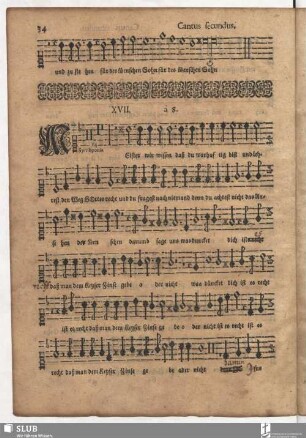 34 Cantus secundus.
und zu ste hen für des Menschen Sohn für des Menschen Sohn
XVII. à 8.
MEister wir wissen daß du warhaf tig bist und leh-
rest den Weg Gottes recht und du fragest nach niemand denn du achtest nicht das An-
se hen der Men schen darumb sage uns was düncket dich ist es recht
daß man dem Keyser Zinse gebe o der nicht was düncket dich ist es recht
ist es recht daß man dem Keyser Zinse ge be o der nicht ist es recht ist es
recht daß man dem Keyser Zinse ge be oder nicht
SLUB